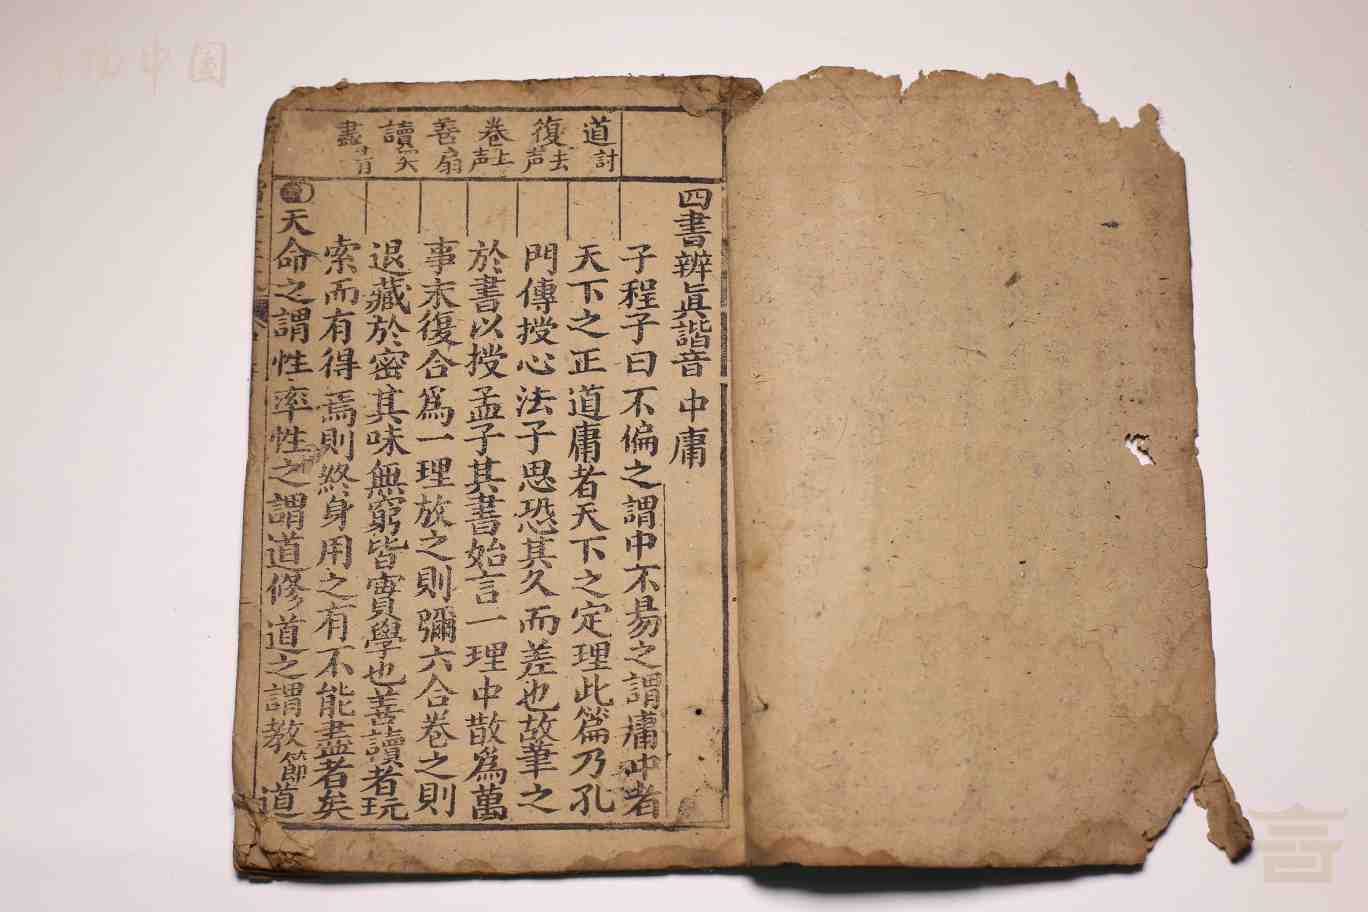 道討
復去声
卷上声
善扇
讀
盡
四書辨真諧音 中庸
子程子曰不偏之謂中不易之謂庸中者
天下之正道庸者天下之定理此篇乃孔
門傳授心法子思恐其久而差也故筆之
於書以授孟子其書始言一理中散為萬
事末復合為一理放之則彌六合卷之則
退藏於密其味無窮皆實學也善讀者玩
索而有得焉則終身用之有不能盡者矣
天命之謂性率性之謂道修道之謂教節道
中国